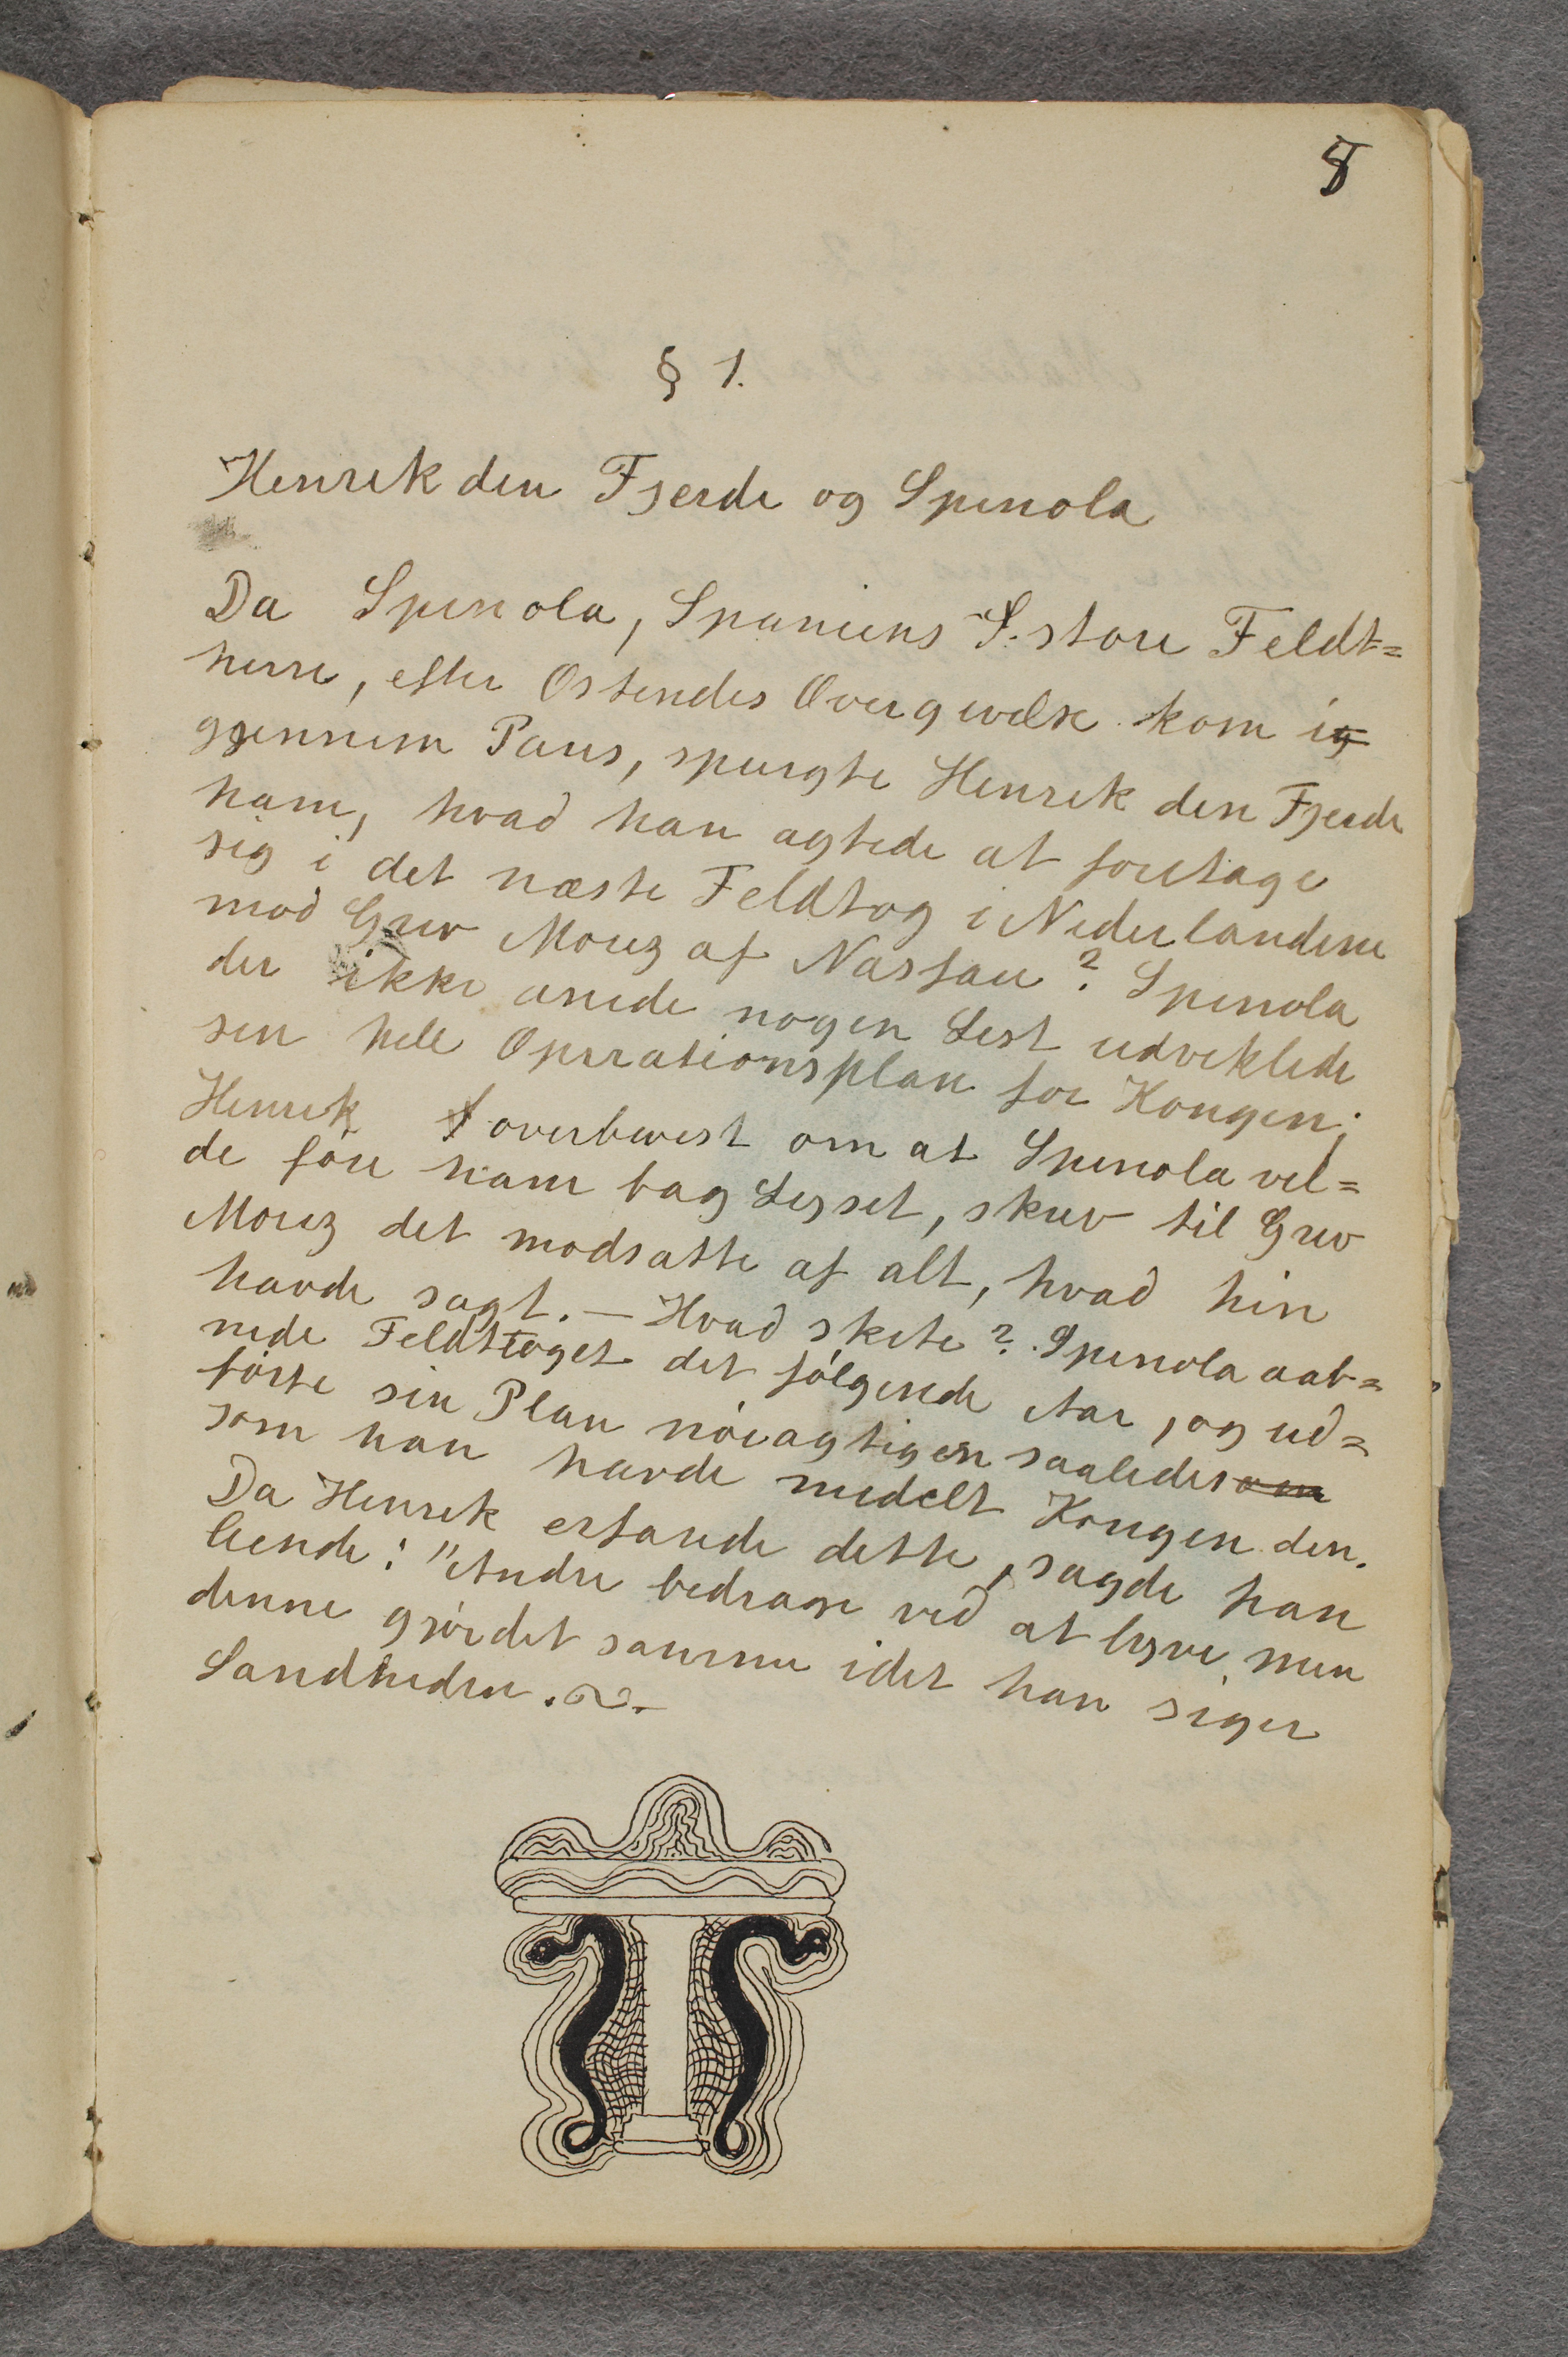 8
§ 1.
Henrik den Fjerde og Spinola
Da Spinola, Spaniens S. store Feldt=
herre, efter Ostendes Overgivelse kom ig
gjennem Paris, spurgte Henrik den Fjerde
ham, hvad han agtede at foretage
sig i det næste Feldtog i Nederlandene
mod Grev Moriz af Nassau? Spinola
der ikke anede nogen List udviklede
sin hele Operationsplan for Kongen;
Henrik overbevist om at Spinola vil=
de føre ham bag Lyset, skrev til Grev
Moriz det modsatte af alt, hvad hin
havde sagt. — Hvad skete? Spinola aab=
nede Feldttoget det følgende Aar, og ud=
førte sin Plan nøiagtigen saaledes
som han havde meddelt Kongen den.
Da Henrik erfarede dette, sagde han
leende: "Andre bedrage ved at lyve, men
denne gjør det samme idet han siger
Sandheden.